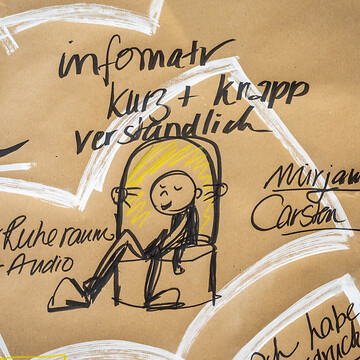 informativ
kurz + knapp
verständlich
Mirjam
Carsten
Ruheraum
+ Audio
ich habe